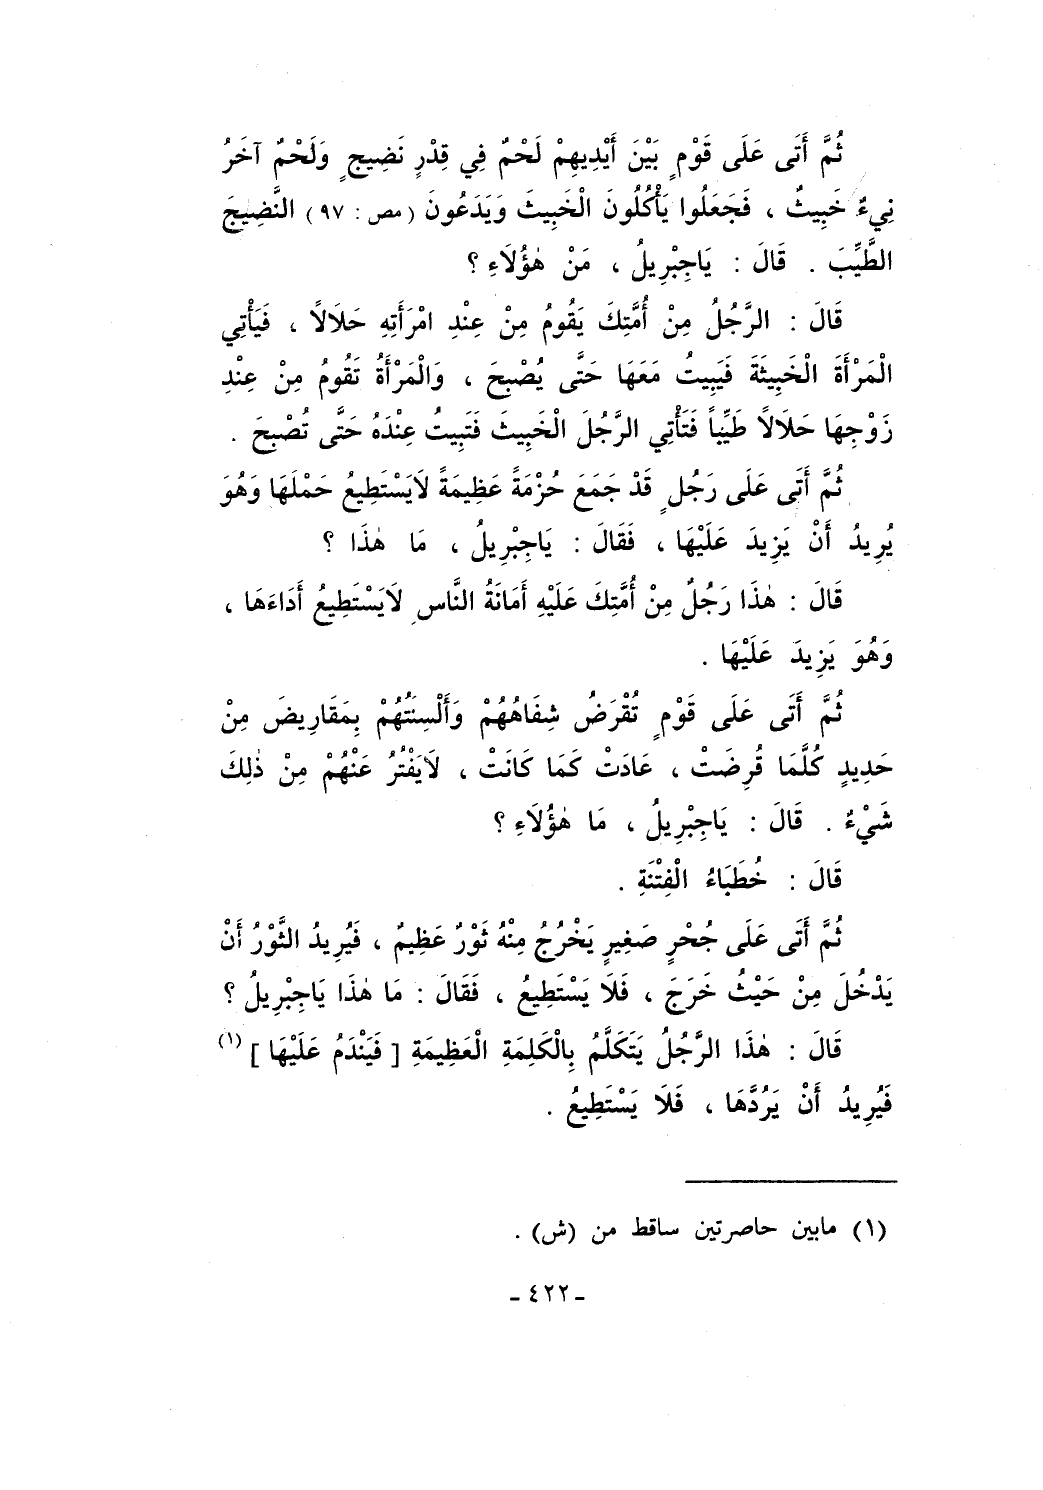 ثُمَّ أَتَى عَلَى قَوْمٍ بَيْنَ أَيْدِيهِمْ لَحْمٌ فِي قِدْرٍ نَضِيجٍ وَلَحْمٌ آخَرُ
نِيءٌ خَبِيثٌ ، فَجَعَلُوا يَأْكُلُونَ الْخَبِيثَ وَيَدَعُونَ ( مص : ٩٧ ) النَّضِيجَ
الطَّيِّبَ . قَالَ : يَاجِبْرِيلُ ، مَنْ هٰؤُلَاءِ ؟
قَالَ : الرَّجُلُ مِنْ أُمَّتِكَ يَقُومُ مِنْ عِنْدِ امْرَأَتِهِ حَلَالاً ، فَيَأْتِي
الْمَرْأَةَ الْخَبِيثَةَ فَيَبِيتُ مَعَهَا حَتَّى يُصْبِحَ ، وَالْمَرْأَةُ تَقُومُ مِنْ عِنْدِ
زَوْجِهَا حَلَالاً طَيِّباً فَتَأْتِي الرَّجُلَ الْخَبِيثَ فَتَبِيتُ عِنْدَهُ حَتَّى تُصْبِحَ .
ثُمَّ أَتَى عَلَى رَجُلٍ قَدْ جَمَعَ حُزْمَةً عَظِيمَةً لَايَسْتَطِيعُ حَمْلَهَا وَهُوَ
يُرِيدُ أَنْ يَزِيدَ عَلَيْهَا ، فَقَالَ : يَاجِبْرِيلُ ، مَا هٰذَا ؟
قَالَ : هٰذَا رَجُلٌ مِنْ أُمَّتِكَ عَلَيْهِ أَمَانَةُ النَّاسِ لَايَسْتَطِيعُ أَدَاءَهَا ،
وَهُوَ يَزِيدَ عَلَيْهَا .
ثُمَّ أَتَى عَلَى قَوْمٍ تُقْرَضُ شِفَاهُهُمْ وَأَلْسِنَتُهُمْ بِمَقَارِيضَ مِنْ
حَدِيدٍ كُلَّمَا قُرِضَتْ ، عَادَتْ كَمَا كَانَتْ ، لَايَفْتُرُ عَنْهُمْ مِنْ ذٰلِكَ
شَيْءٌ . قَالَ : يَاجِبْرِيلُ ، مَا هٰؤُلَاءِ ؟
قَالَ : خُطَبَاءُ الْفِتْنَةِ .
ثُمَّ أَتَى عَلَى جُحْرٍ صَغِيرٍ يَخْرُجُ مِنْهُ ثَوْرٌ عَظِيمٌ ، فَيُرِيدُ الثَّوْرُ أَنْ
يَدْخُلَ مِنْ حَيْثُ خَرَجَ ، فَلَا يَسْتَطِيعُ ، فَقَالَ : مَا هٰذَا يَاجِبْرِيلُ ؟
قَالَ : هٰذَا الرَّجُلُ يَتَكَلَّمُ بِالْكَلِمَةِ الْعَظِيمَةِ [ فَيَنْدَمُ عَلَيْهَا ] (١)
فَيُرِيدُ أَنْ يَرُدَّهَا ، فَلَا يَسْتَطِيعُ .
(١) مابين حاصرتين ساقط من (ش) .
- ٤٢٢ -